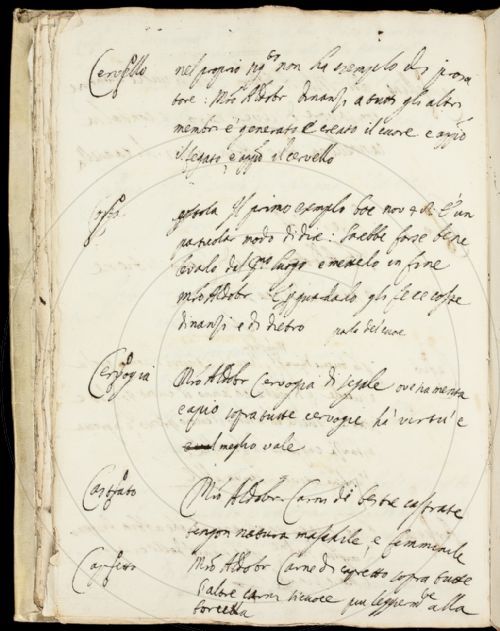 Cervello nel proprio sig.to non ha esempio di prosa
tore: M.ro Aldobr dinanzi a tutti gli altri
membri è generato e creato il cuore e appò
il fegato, e appò il cervello
Il primo esemplo boc nov è un
particolar modo di dire: sarebbe forse bene
levalo del p.mo luogo e mettelo in fine
M.ro Aldobr gli fece
dinanzi e di dietro
Cervogia M.ro Aldobr Cervogia di segale ove ha menta
e apio sopra tutte cervogie ha virtu' e
meglio vale
Castrato M.ro Aldobr Carni di bestie castrate
tengon natura maschile, e femminile
Capretto M.ro Aldobr Carne di capretto sopra tutte
l'altre carni si cuoce più alla
forcella